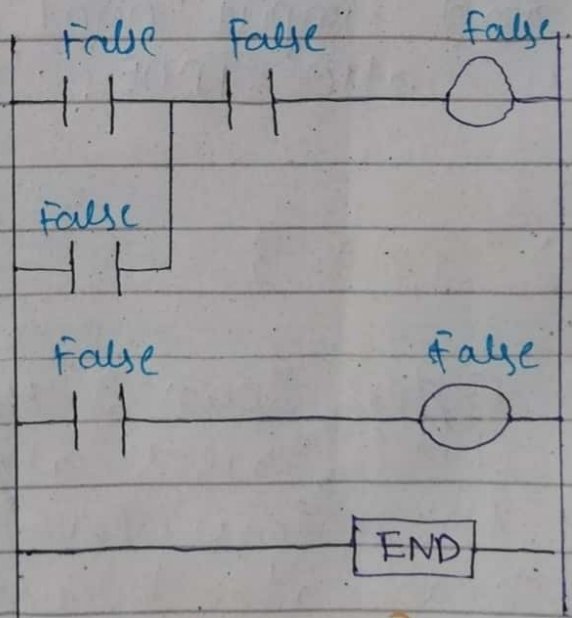 False False False
False
False False
END